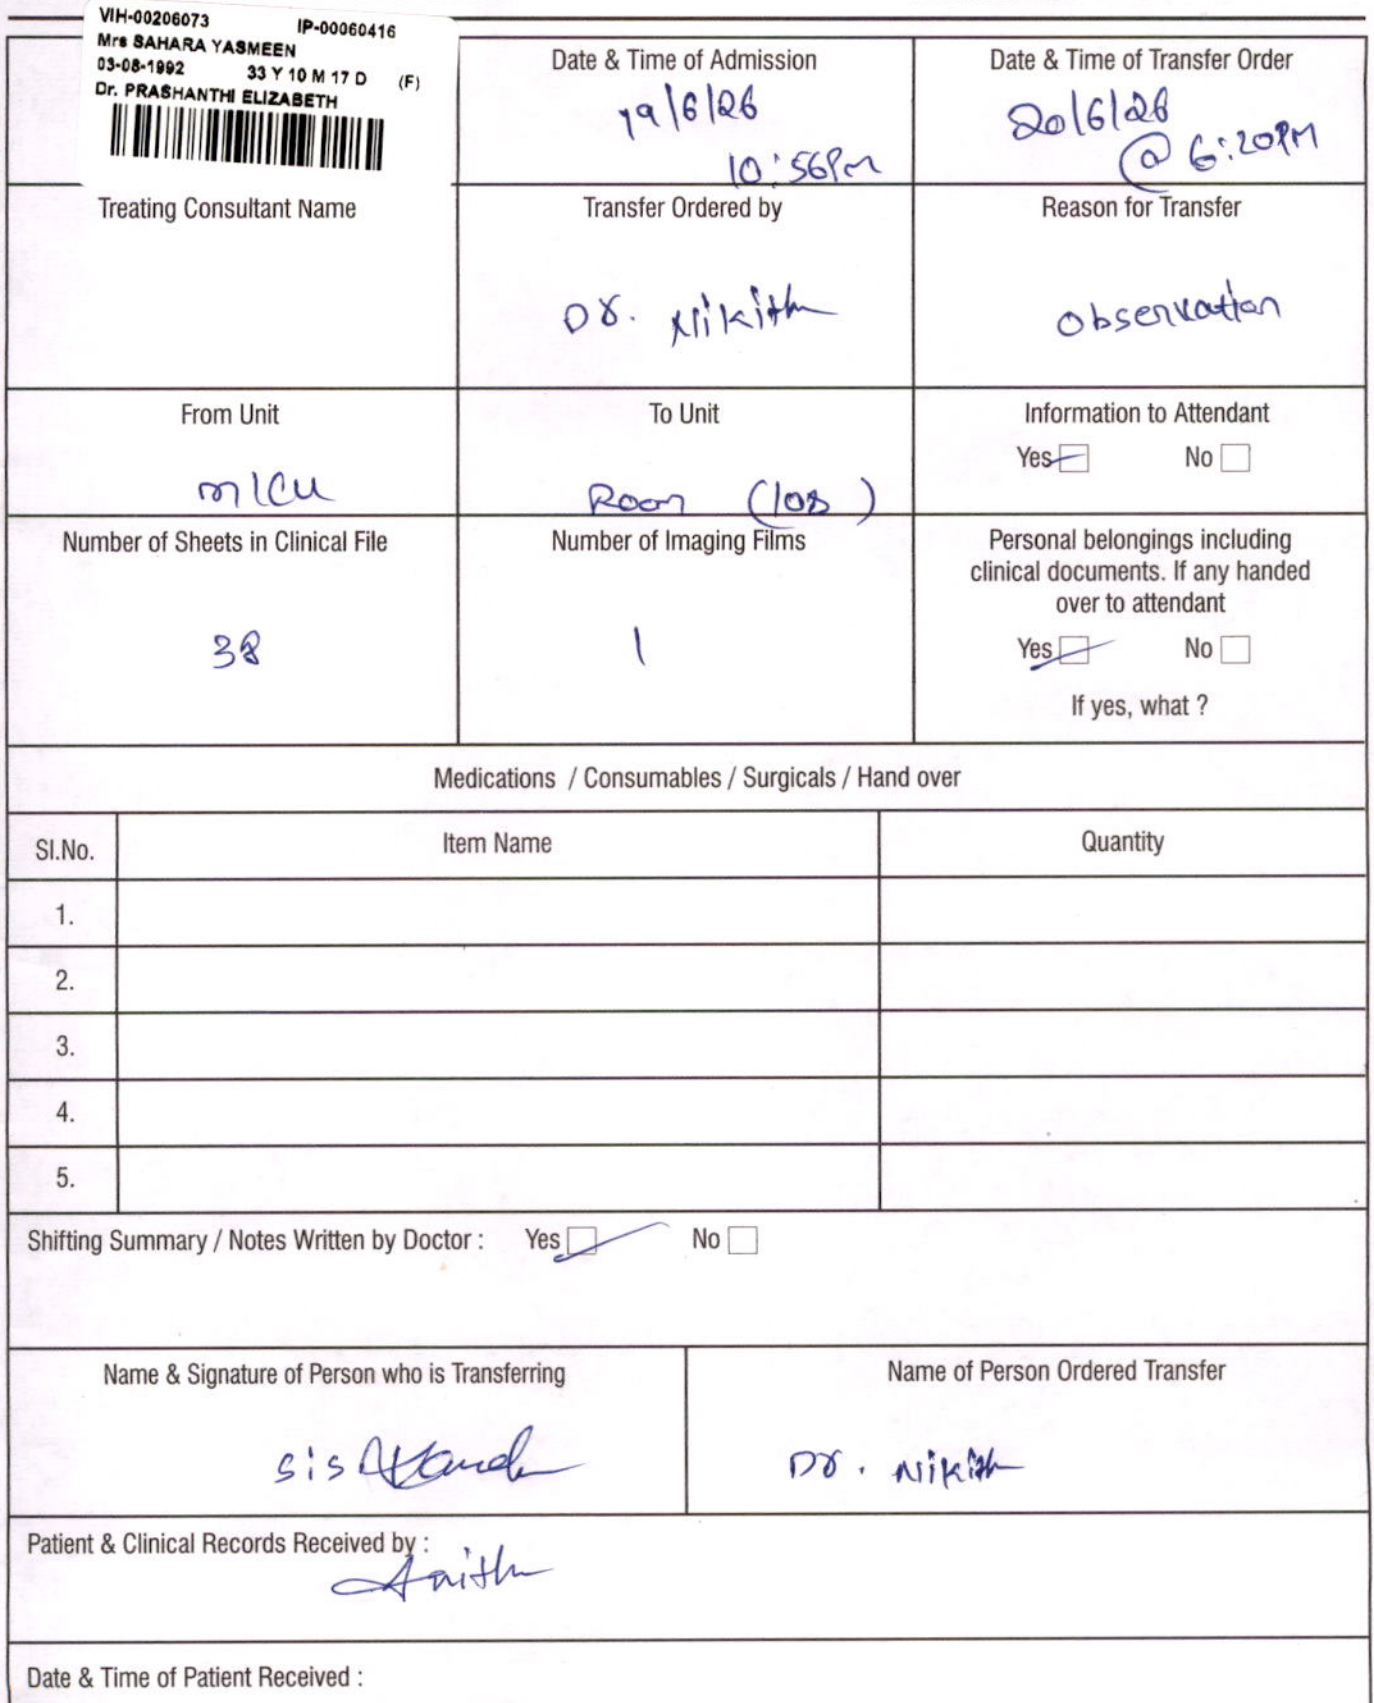 VIH-00206073 IP-00060416
Mrs SAHARA YASMEEN
03-08-1992 33 Y 10 M 17 D (F)
Dr. PRASHANTHI ELIZABETH
Date & Time of Admission
19/6/26
10:56Pm
Date & Time of Transfer Order
20/6/26
@ 6:20PM
Treating Consultant Name
Transfer Ordered by
Dr. Nikith
Reason for Transfer
Observation
From Unit
MICU
To Unit
Room (108)
Information to Attendant
Yes No
Number of Sheets in Clinical File
38
Number of Imaging Films
1
Personal belongings including
clinical documents. If any handed
over to attendant
Yes No
If yes, what ?
Medications / Consumables / Surgicals / Hand over
Sl.No. Item Name Quantity
1.
2.
3.
4.
5.
Shifting Summary / Notes Written by Doctor : Yes No
Name & Signature of Person who is Transferring
sis
Name of Person Ordered Transfer
Dr. Nikith
Patient & Clinical Records Received by :
Date & Time of Patient Received :